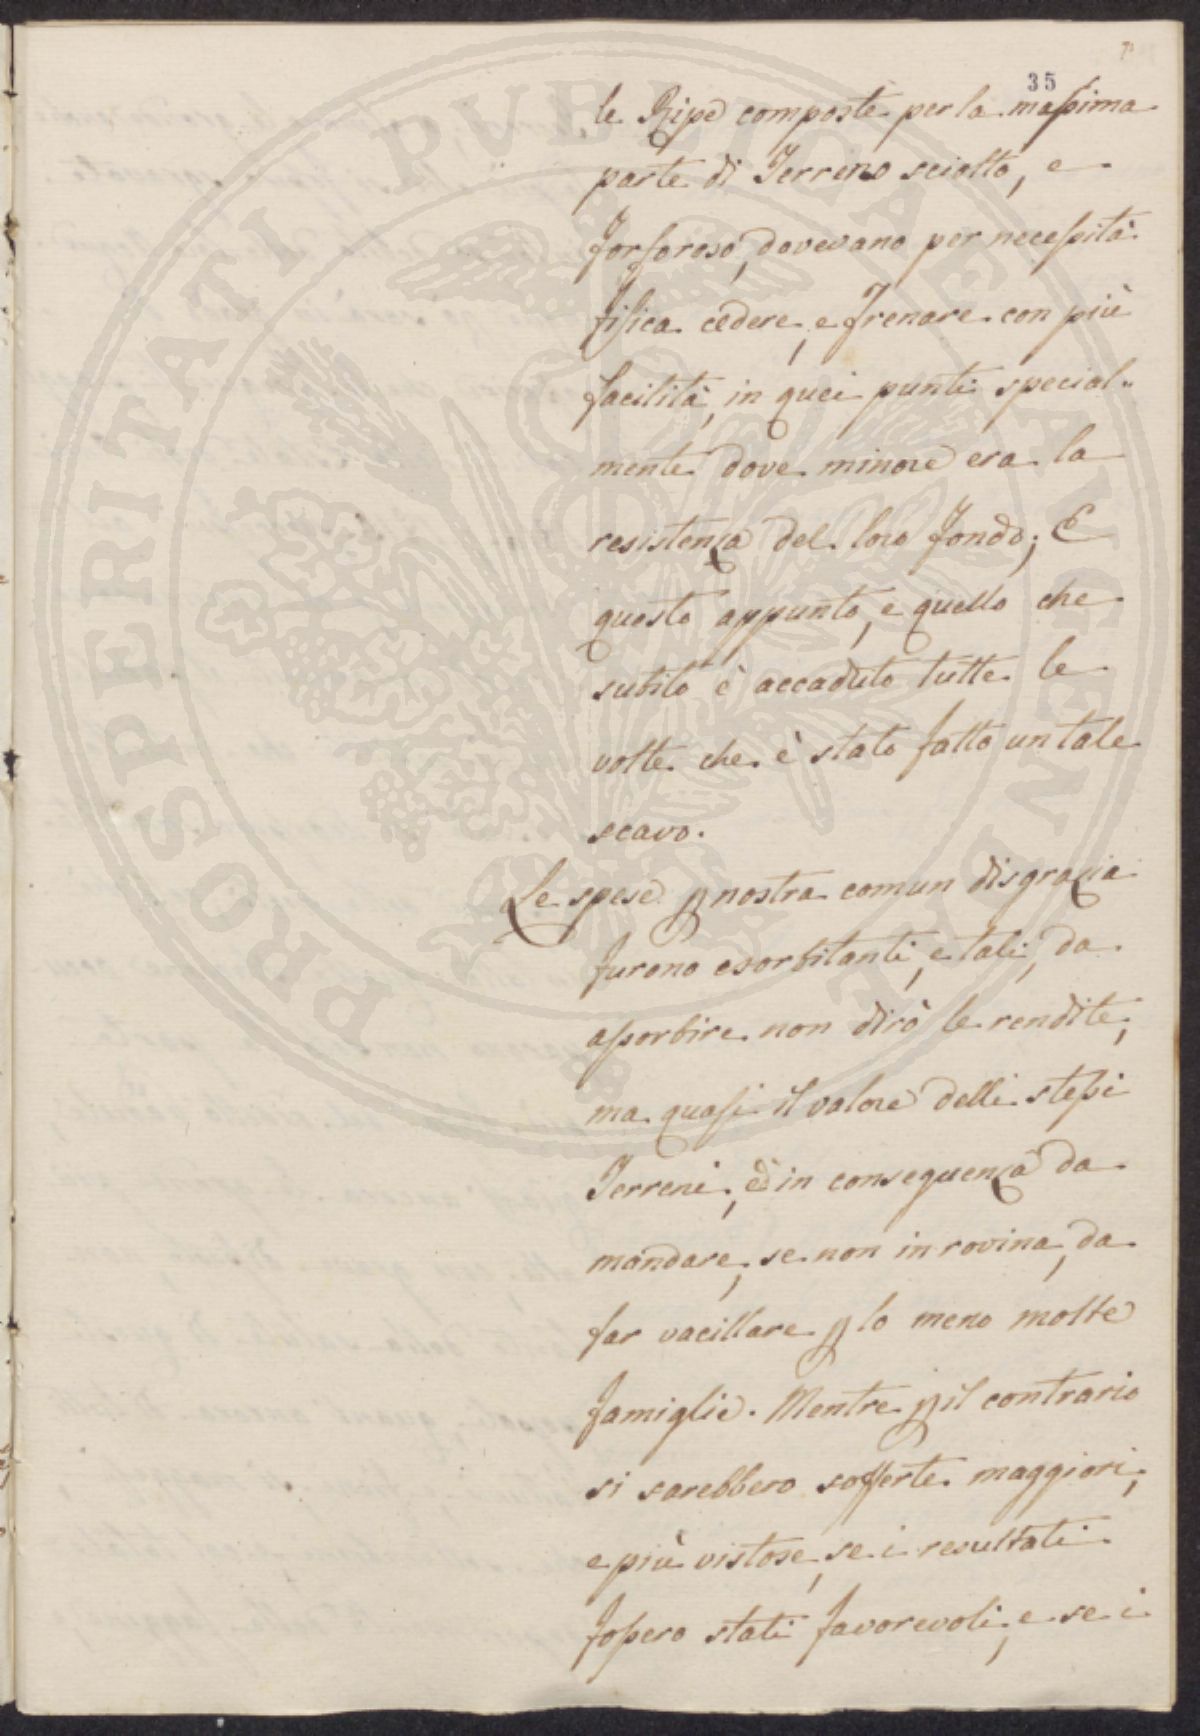 35
le Ripe composte per la massima
parte di Terreno sciolto, e
forforoso, dovevano per necessità
fisica cedere, e frenare con più
facilità, in quei punti special„
mente dove minore era la
resistenza del loro fondo; E
questo appunto, e quello che
subito è accaduto tutte le
volte che è stato fatto un tale
scavo.
Le spese p nostra comun disgrazia
furono esorbitanti, e tali, da
assorbire non dirò le rendite,
ma quasi il valore delli stessi
Terreni, ed in conseguenza da
mandare, se non in rovina, da
far vacillare p lo meno molte
famiglie. Mentre p il contrario
si sarebbero sofferte maggiori,
e più vistose, se i resultati
fossero stati favorevoli, e se i
PROSPERITATI PUBLICAE AUGENDAE